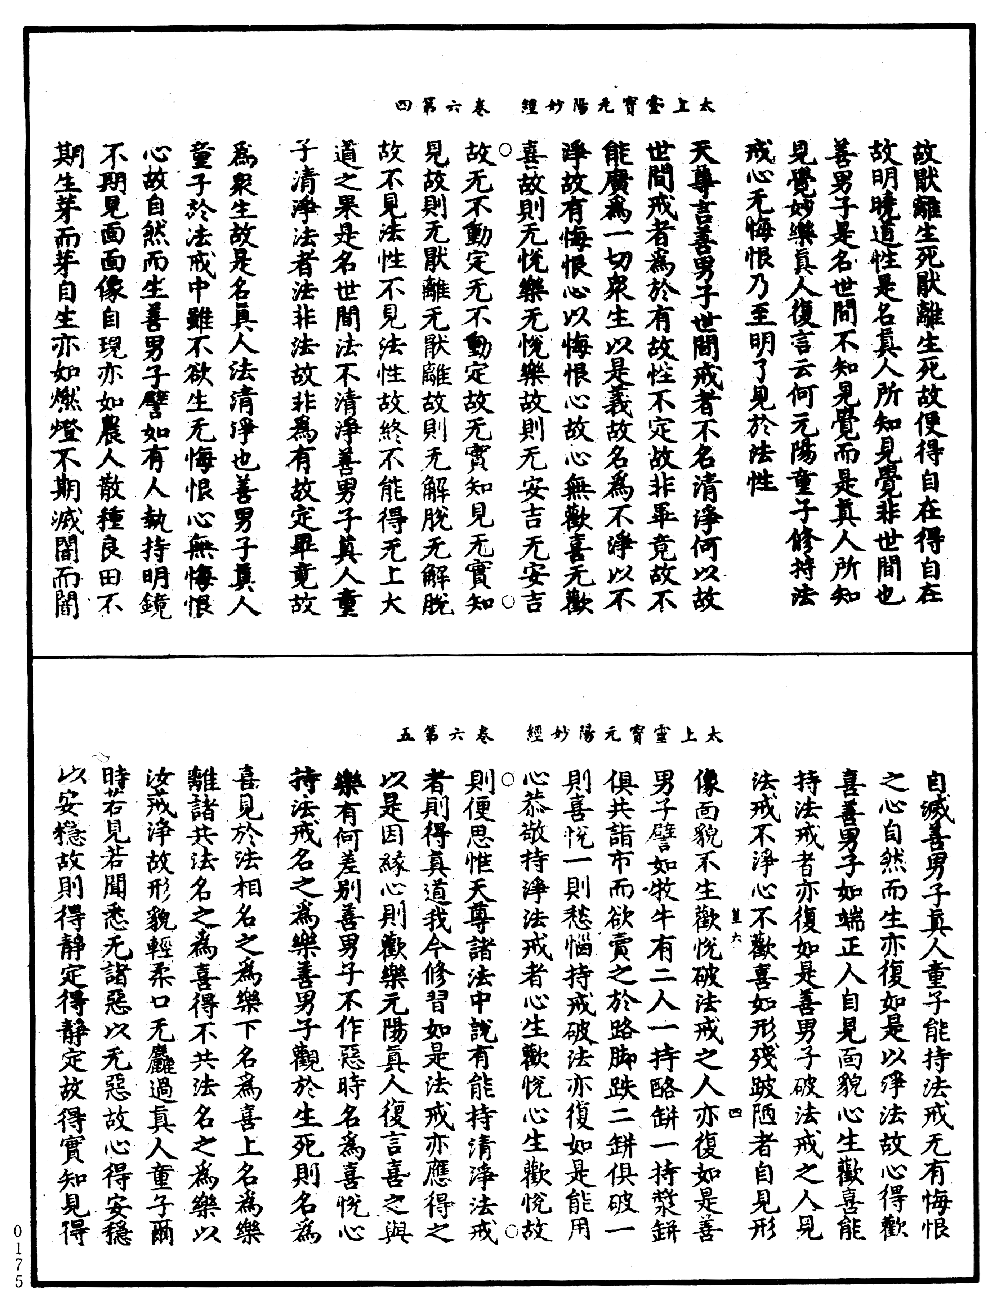 太上靈寶元陽妙經　卷六第四
故猒離生死猒離生死故便得自在得自在
故明曉道性是名真人所知見覺非世間也
善男子是名世間不知見覺而是真人所知
見覺妙樂真人復言云何元陽童子修持法
戒心无悔恨乃至明了見於法性
天尊言善男子世間戒者不名清淨何以故
世間戒者為於有故性不定故非畢竟故不
能廣為一切衆生以是義故名為不淨以不
淨故有悔恨心以悔恨心故心無歡喜无歡
喜故則无悅樂无悅樂故則无安吉无安吉
故无不動定无不動定故无實知見无實知
見故則无猒離无猒離故則无解脫无解脫
故不見法性不見法性故終不能得无上大
道之果是名世間法不清淨善男子真人童
子清淨法者法非法故非為有故定畢竟故
為衆生故是名真人法清淨也善男子真人
童子於法戒中雖不欲生无悔恨心無悔恨
心故自然而生善男子譬如有人執持明鏡
不期見面面像自現亦如農人散種良田不
期生芽而芽自生亦如燃燈不期滅闇而闇
太上靈寶元陽妙經　卷六第五
自滅善男子真人童子能持法戒无有悔恨
之心自然而生亦復如是以淨法故心得歡
喜善男子如端正人自見面貌心生歡喜能
持法戒者亦復如是善男子破法戒之人見
法戒不淨心不歡喜如形殘跛陋者自見形
像面貌不生歡悅破法戒之人亦復如是善
男子譬如牧牛有二人一持酪缾一持漿缾
俱共詣市而欲賣之於路脚跌二缾俱破一
則喜悅一則愁惱持戒破法亦復如是能用
心恭敬持淨法戒者心生歡悅心生歡悅故
則便思惟天尊諸法中說有能持清淨法戒
者則得真道我今修習如是法戒亦應得之
以是因緣心則歡樂元陽真人復言喜之與
樂有何差別善男子不作惡時名為喜悅心
持法戒名之為樂善男子觀於生死則名為
喜見於法相名之為樂下名為喜上名為樂
離諸共法名之為喜得不共法名之為樂以
汝戒淨故形貌輕柔口无麤過真人童子爾
時若見若聞悉无諸惡以无惡故心得安穩
以安穩故則得靜定得靜定故得實知見得
0175